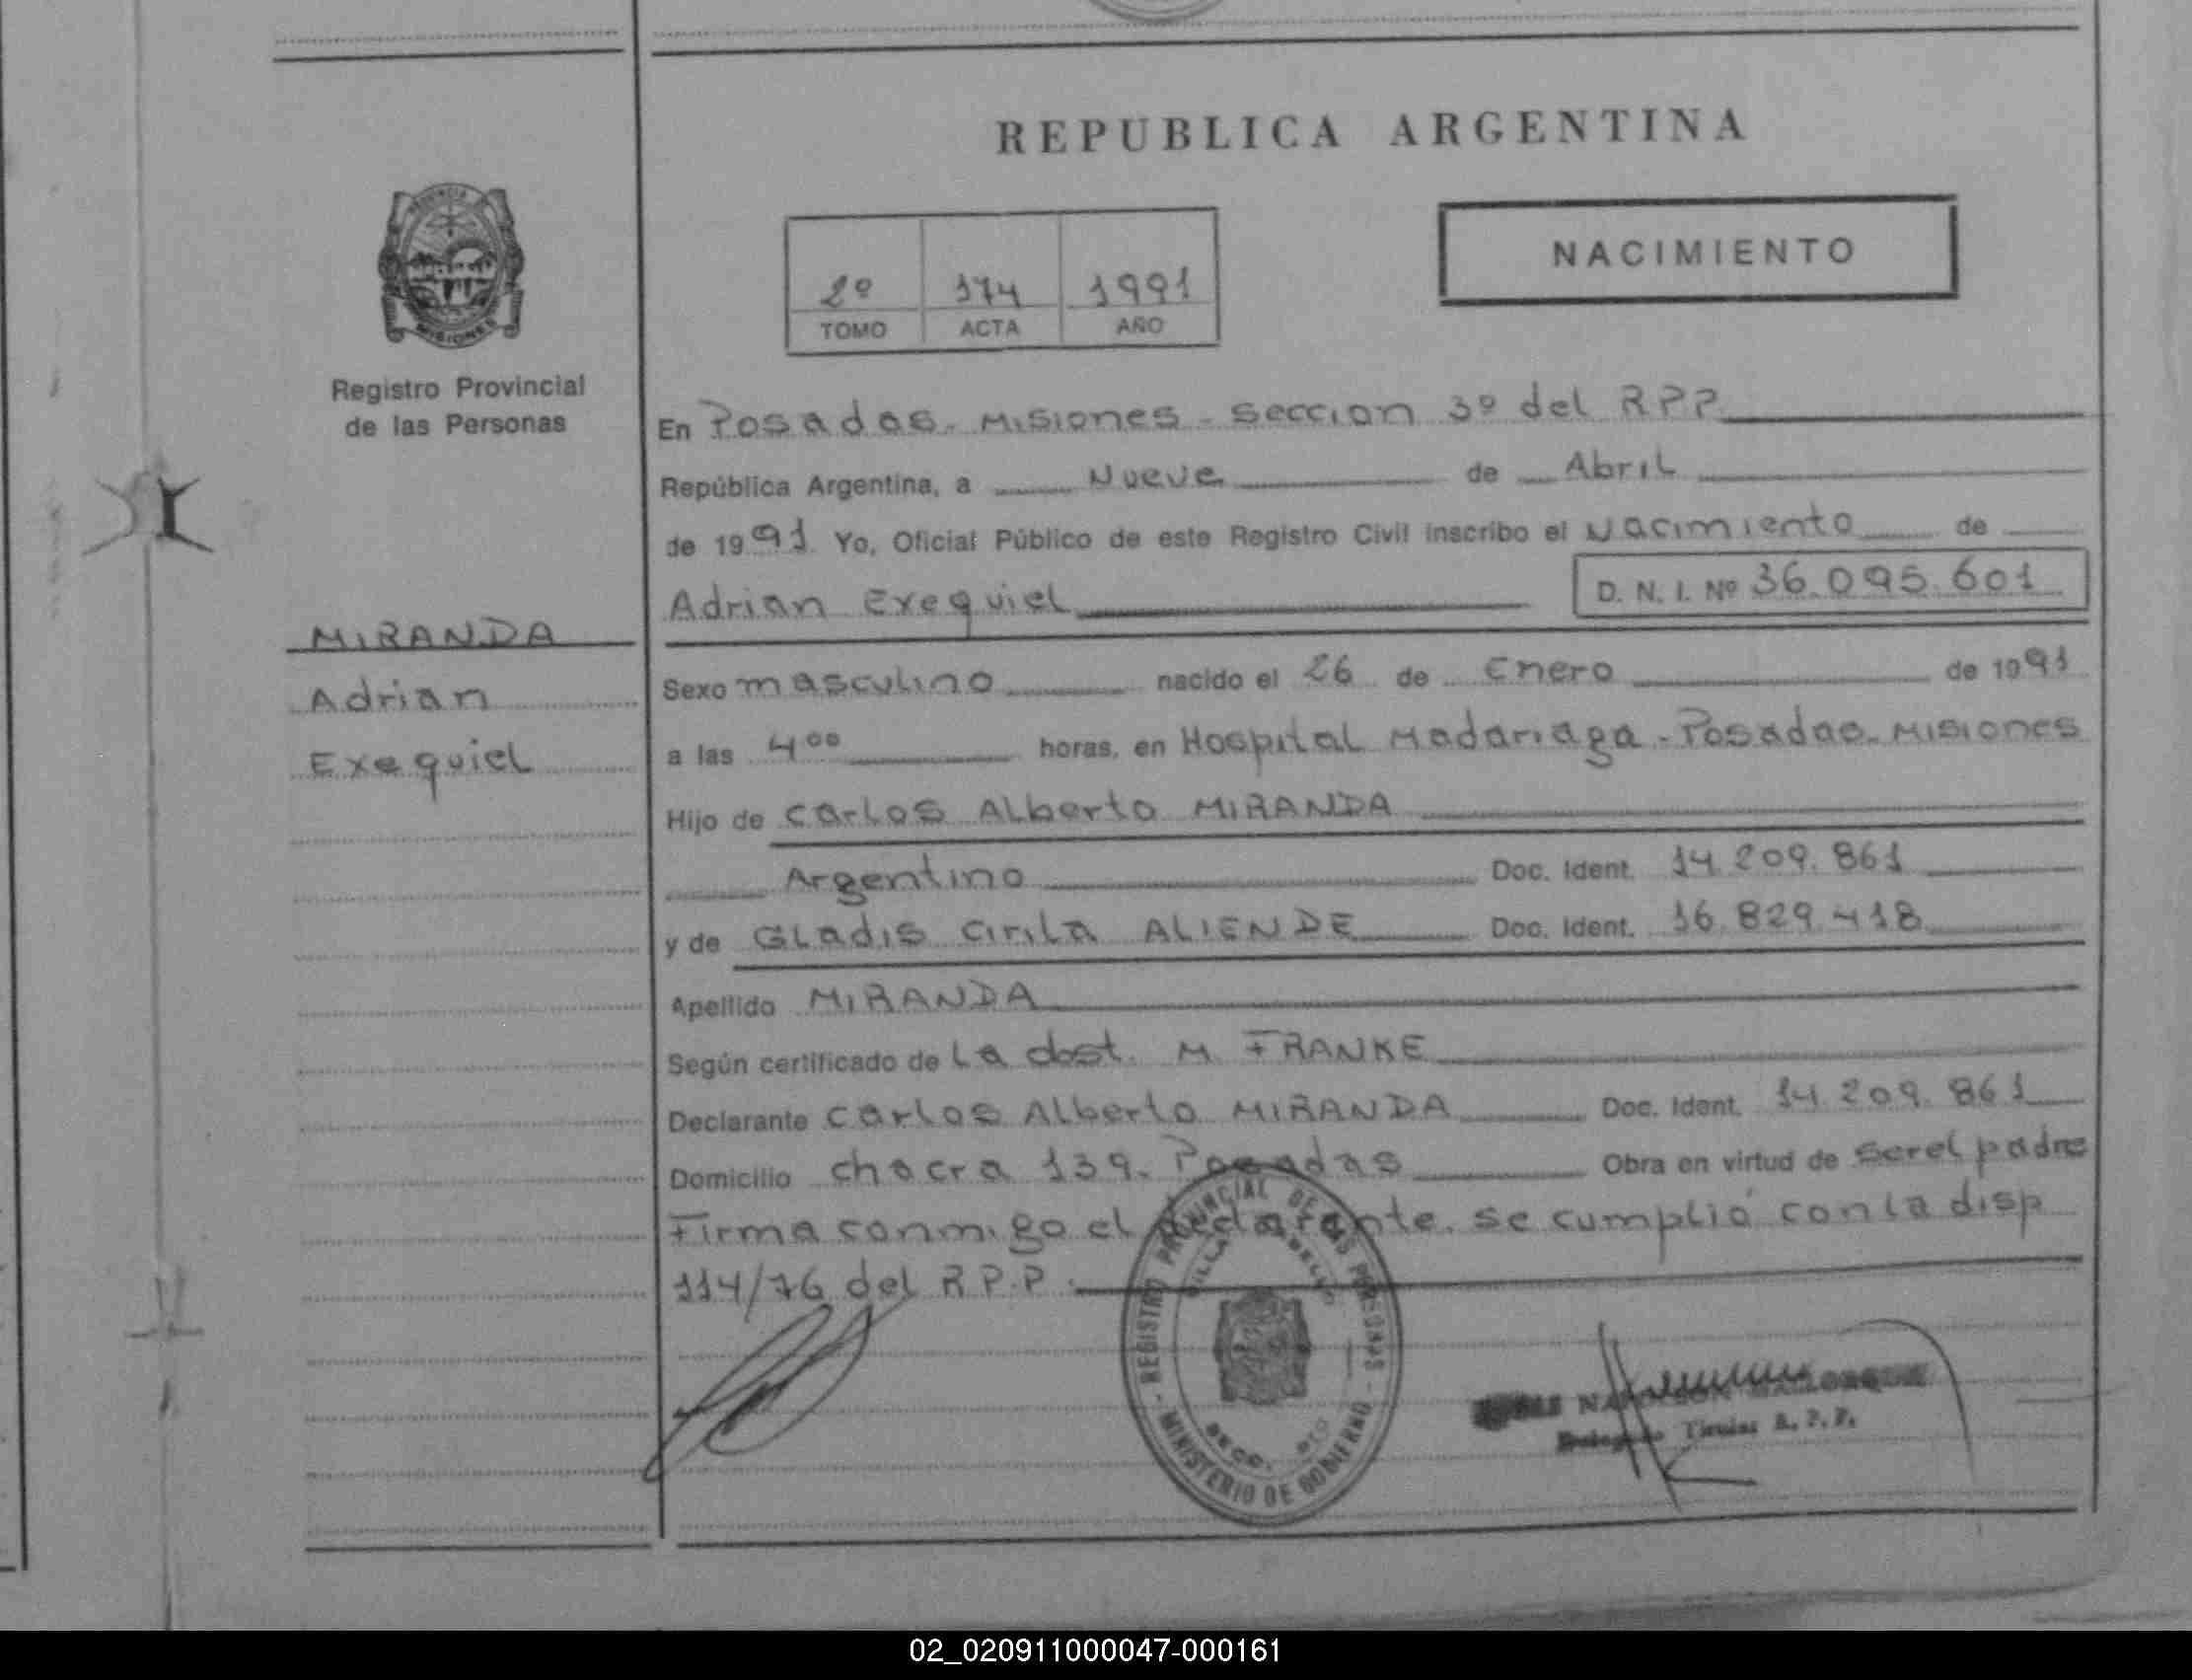 REPUBLICA ARGENTINA
PROVINCIA
MISIONES
Registro Provincial
de las Personas
2º 174 1991
TOMO ACTA AÑO
NACIMIENTO
En Posadas - Misiones - seccion 3º del RPP
República Argentina, a Nueve de Abril
de 1991 Yo, Oficial Público de este Registro Civil inscribo el Nacimiento de
Adrian Exequiel D. N. I. Nº 36.095.601
MIRANDA
Adrian
Exequiel
Sexo masculino nacido el 26 de Enero de 1991
a las 4 00 horas, en Hospital Madariaga - Posadas - Misiones
Hijo de Carlos Alberto MIRANDA
Argentino Doc. Ident. 14.209.861
y de Gladis Cirila ALIENDE Doc. Ident. 16.829.418
Apellido MIRANDA
Según certificado de La obst. M. FRANKE
Declarante Carlos Alberto MIRANDA Doc. Ident. 14.209.861
Domicilio chacra 139. Posadas Obra en virtud de ser el padre
Firma conmigo el declarante. se cumplió con la disp
114/76 del R.P.P.
REGISTRO PROVINCIAL DE LAS PERSONAS
MINISTERIO DE GOBIERNO
Titular R. P. P.
02_020911000047-000161